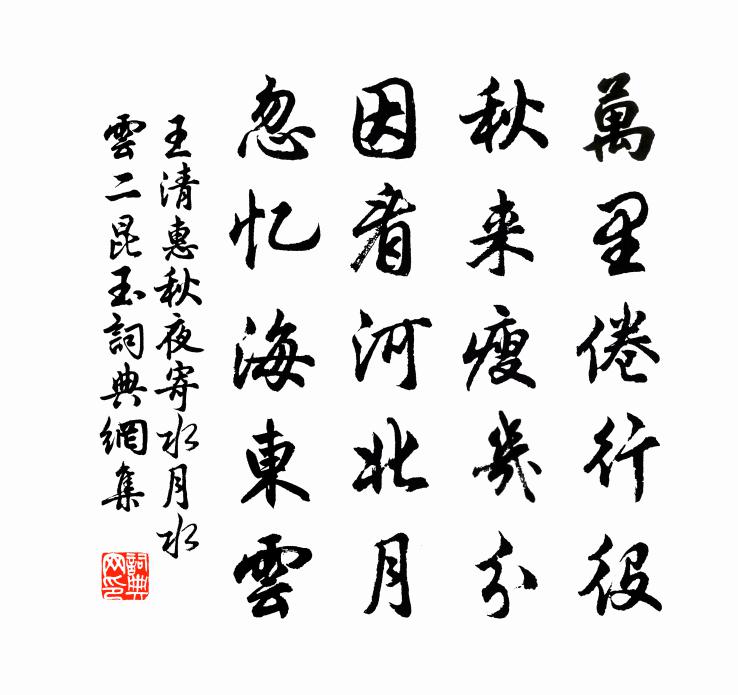 萬里倦行役
秋来瘦幾分
因看河北月
忽忆海東雲
王清惠秋夜寄水月水
雲二昆玉詞典網集
詞典
网印